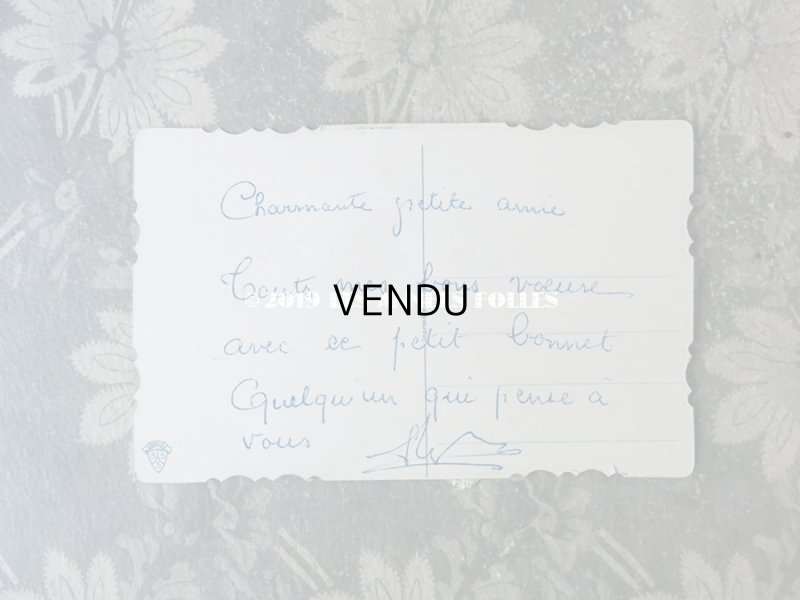 Charmante petite amie
Touts mes bons voeuse
©2019 FOLLES
VENDU
avec ce petit bonnet
Quelqu'un qui pense à
vous